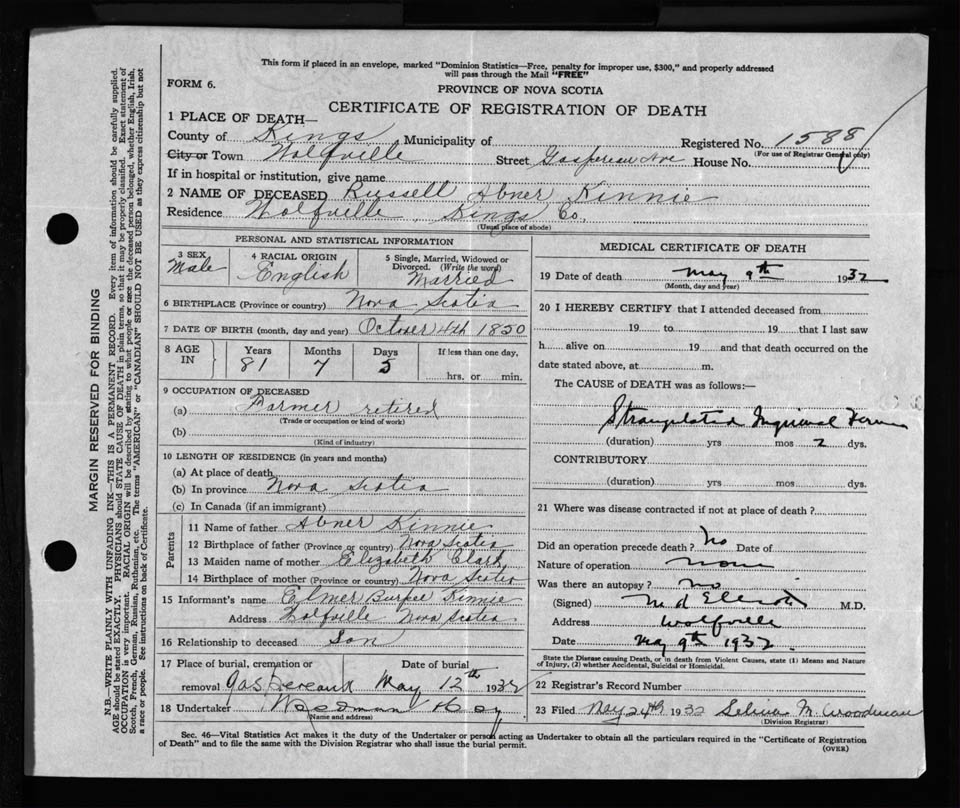 This form if placed in an envelope, marked "Dominion Statistics—Free, penalty for improper use, $300," and properly addressed
will pass through the Mail "FREE"
FORM 6.
PROVINCE OF NOVA SCOTIA
CERTIFICATE OF REGISTRATION OF DEATH
1 PLACE OF DEATH—
County of Kings Municipality of Registered No. 1588
(For use of Registrar General only)
City or Town Wolfville Street Gaspereau Ave House No.
If in hospital or institution, give name
2 NAME OF DECEASED Russell Abner Kinnie
Residence Wolfville, Kings Co.
(Usual place of abode)
PERSONAL AND STATISTICAL INFORMATION
3 SEX 4 RACIAL ORIGIN 5 Single, Married, Widowed or
Divorced. (Write the word)
Male English Married
6 BIRTHPLACE (Province or country) Nova Scotia
7 DATE OF BIRTH (month, day and year) October 4th 1850
8 AGE IN Years Months Days If less than one day
81 7 5 hrs. or min.
9 OCCUPATION OF DECEASED
(a) Farmer retired
(Trade or occupation or kind of work)
(b)
(Kind of industry)
10 LENGTH OF RESIDENCE (in years and months)
(a) At place of death
(b) In province Nova Scotia
(c) In Canada (if an immigrant)
Parents
11 Name of father Abner Kinnie
12 Birthplace of father (Province or country) Nova Scotia
13 Maiden name of mother Elizabeth Clark
14 Birthplace of mother (Province or country) Nova Scotia
15 Informant's name Elmer Burpee Kinnie
Address Wolfville Nova Scotia
16 Relationship to deceased Son
17 Place of burial, cremation or Date of burial
removal Gaspereaux May 12th 1932
18 Undertaker Woodman
(Name and address)
MEDICAL CERTIFICATE OF DEATH
19 Date of death May 9th 1932
(Month, day and year)
20 I HEREBY CERTIFY that I attended deceased from
19 to 19 that I last saw
h alive on 19 and that death occurred on the
date stated above, at m.
The CAUSE of DEATH was as follows:—
Strangulated Inguinal Hernia
(duration) yrs mos 2 dys.
CONTRIBUTORY
(duration) yrs mos dys.
21 Where was disease contracted if not at place of death?
Did an operation precede death? No Date of
Nature of operation None
Was there an autopsy? No
(Signed) M. D. Elliott M.D.
Address Wolfville
Date May 9th 1932.
State the Disease causing Death, or in death from Violent Causes, state (1) Means and Nature
of Injury, (2) whether Accidental, Suicidal or Homicidal.
22 Registrar's Record Number
23 Filed May 24th 1932 Selina M. Woodman
(Division Registrar)
Sec. 46—Vital Statistics Act makes it the duty of the Undertaker or person acting as Undertaker to obtain all the particulars required in the "Certificate of Registration
of Death" and to file the same with the Division Registrar who shall issue the burial permit.
(OVER)
MARGIN RESERVED FOR BINDING
N.B.—WRITE PLAINLY WITH UNFADING INK—THIS IS A PERMANENT RECORD. Every item of information should be carefully supplied.
AGE should be stated EXACTLY. PHYSICIANS should STATE CAUSE OF DEATH in plain terms, so that it may be properly classified. Exact statement of
OCCUPATION is very important. RACIAL ORIGIN will be described by stating to what people or race the deceased person belonged, whether English, Irish,
Scotch, French, German, Russian, Ruthenian, etc. The terms "AMERICAN" or "CANADIAN" SHOULD NOT BE USED as they express citizenship but not
a race or people. See instructions on back of Certificate.